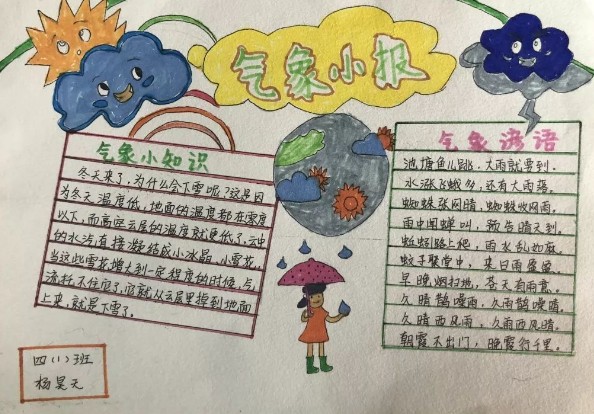 气象小报
气象小知识
冬天来了,为什么会下雪呢?这是因
为冬天温度低,地面的温度都在零度
以下,而高空云层的温度就更低了,云中
的水汽直接凝结成小冰晶、小雪花,
当这些雪花增大到一定程度的时候,气
流托不住它了,它就从云层里掉到地面
上来,就是下雪了。
气象谚语
池塘鱼儿跳,大雨就要到。
水涨飞蛾多,还有大雨落。
蜘蛛张网晴,蜘蛛收网雨。
雨中闻蝉叫,预告晴天到。
蚯蚓路上爬,雨水乱如麻。
蚊子聚堂中,来日雨
早晚烟扫地,苍天有雨意。
久晴鹊噪雨,久雨鹊噪晴。
久晴西风雨,久雨西风晴。
朝霞不出门,晚霞行千里。
四(1)班
杨昊天